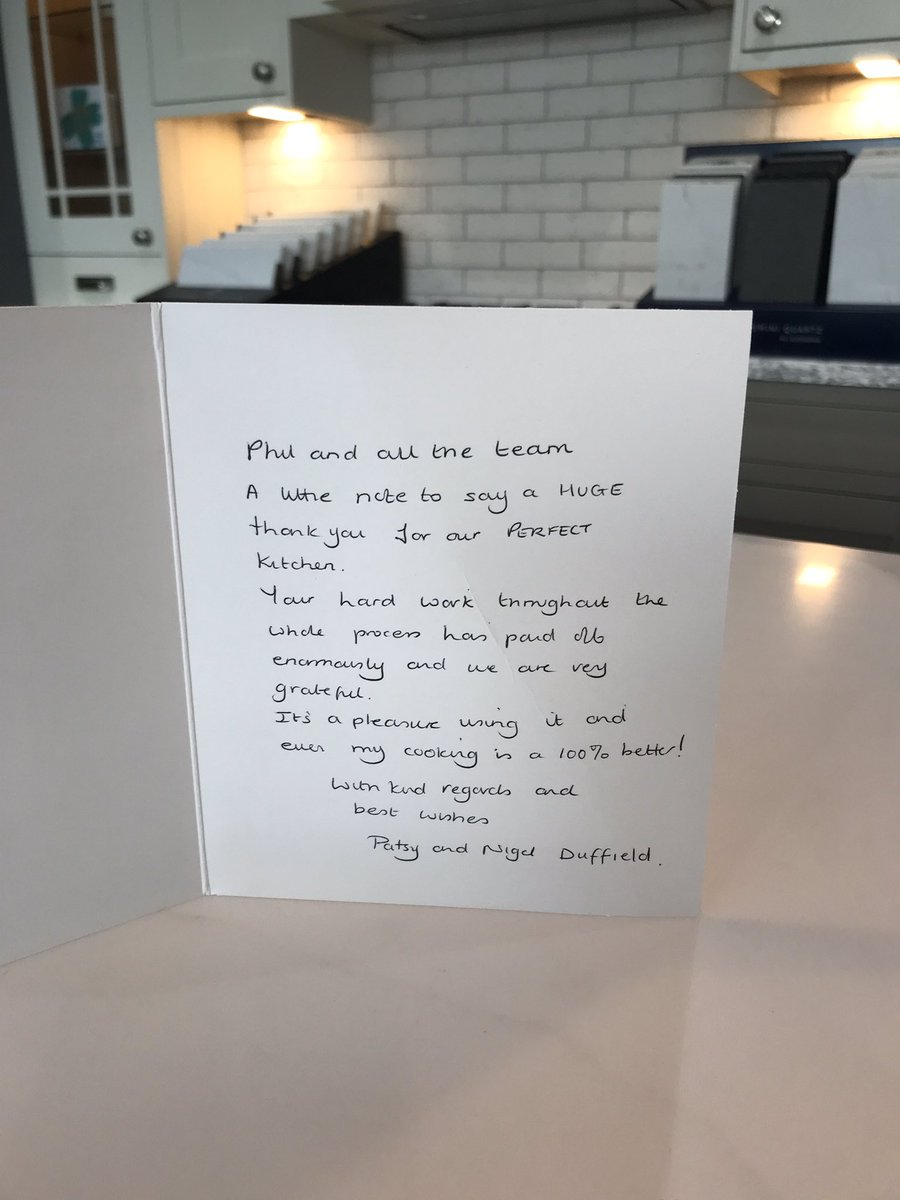 Phil and all the team
A little note to say a HUGE
thank you for our PERFECT
kitchen.
Your hard work throughout the
whole process has paid off
enormously and we are very
grateful.
It's a pleasure using it and
even my cooking is a 100% better!
With kind regards and
best wishes
Patsy and Nigel Duffield.
QUARTZ